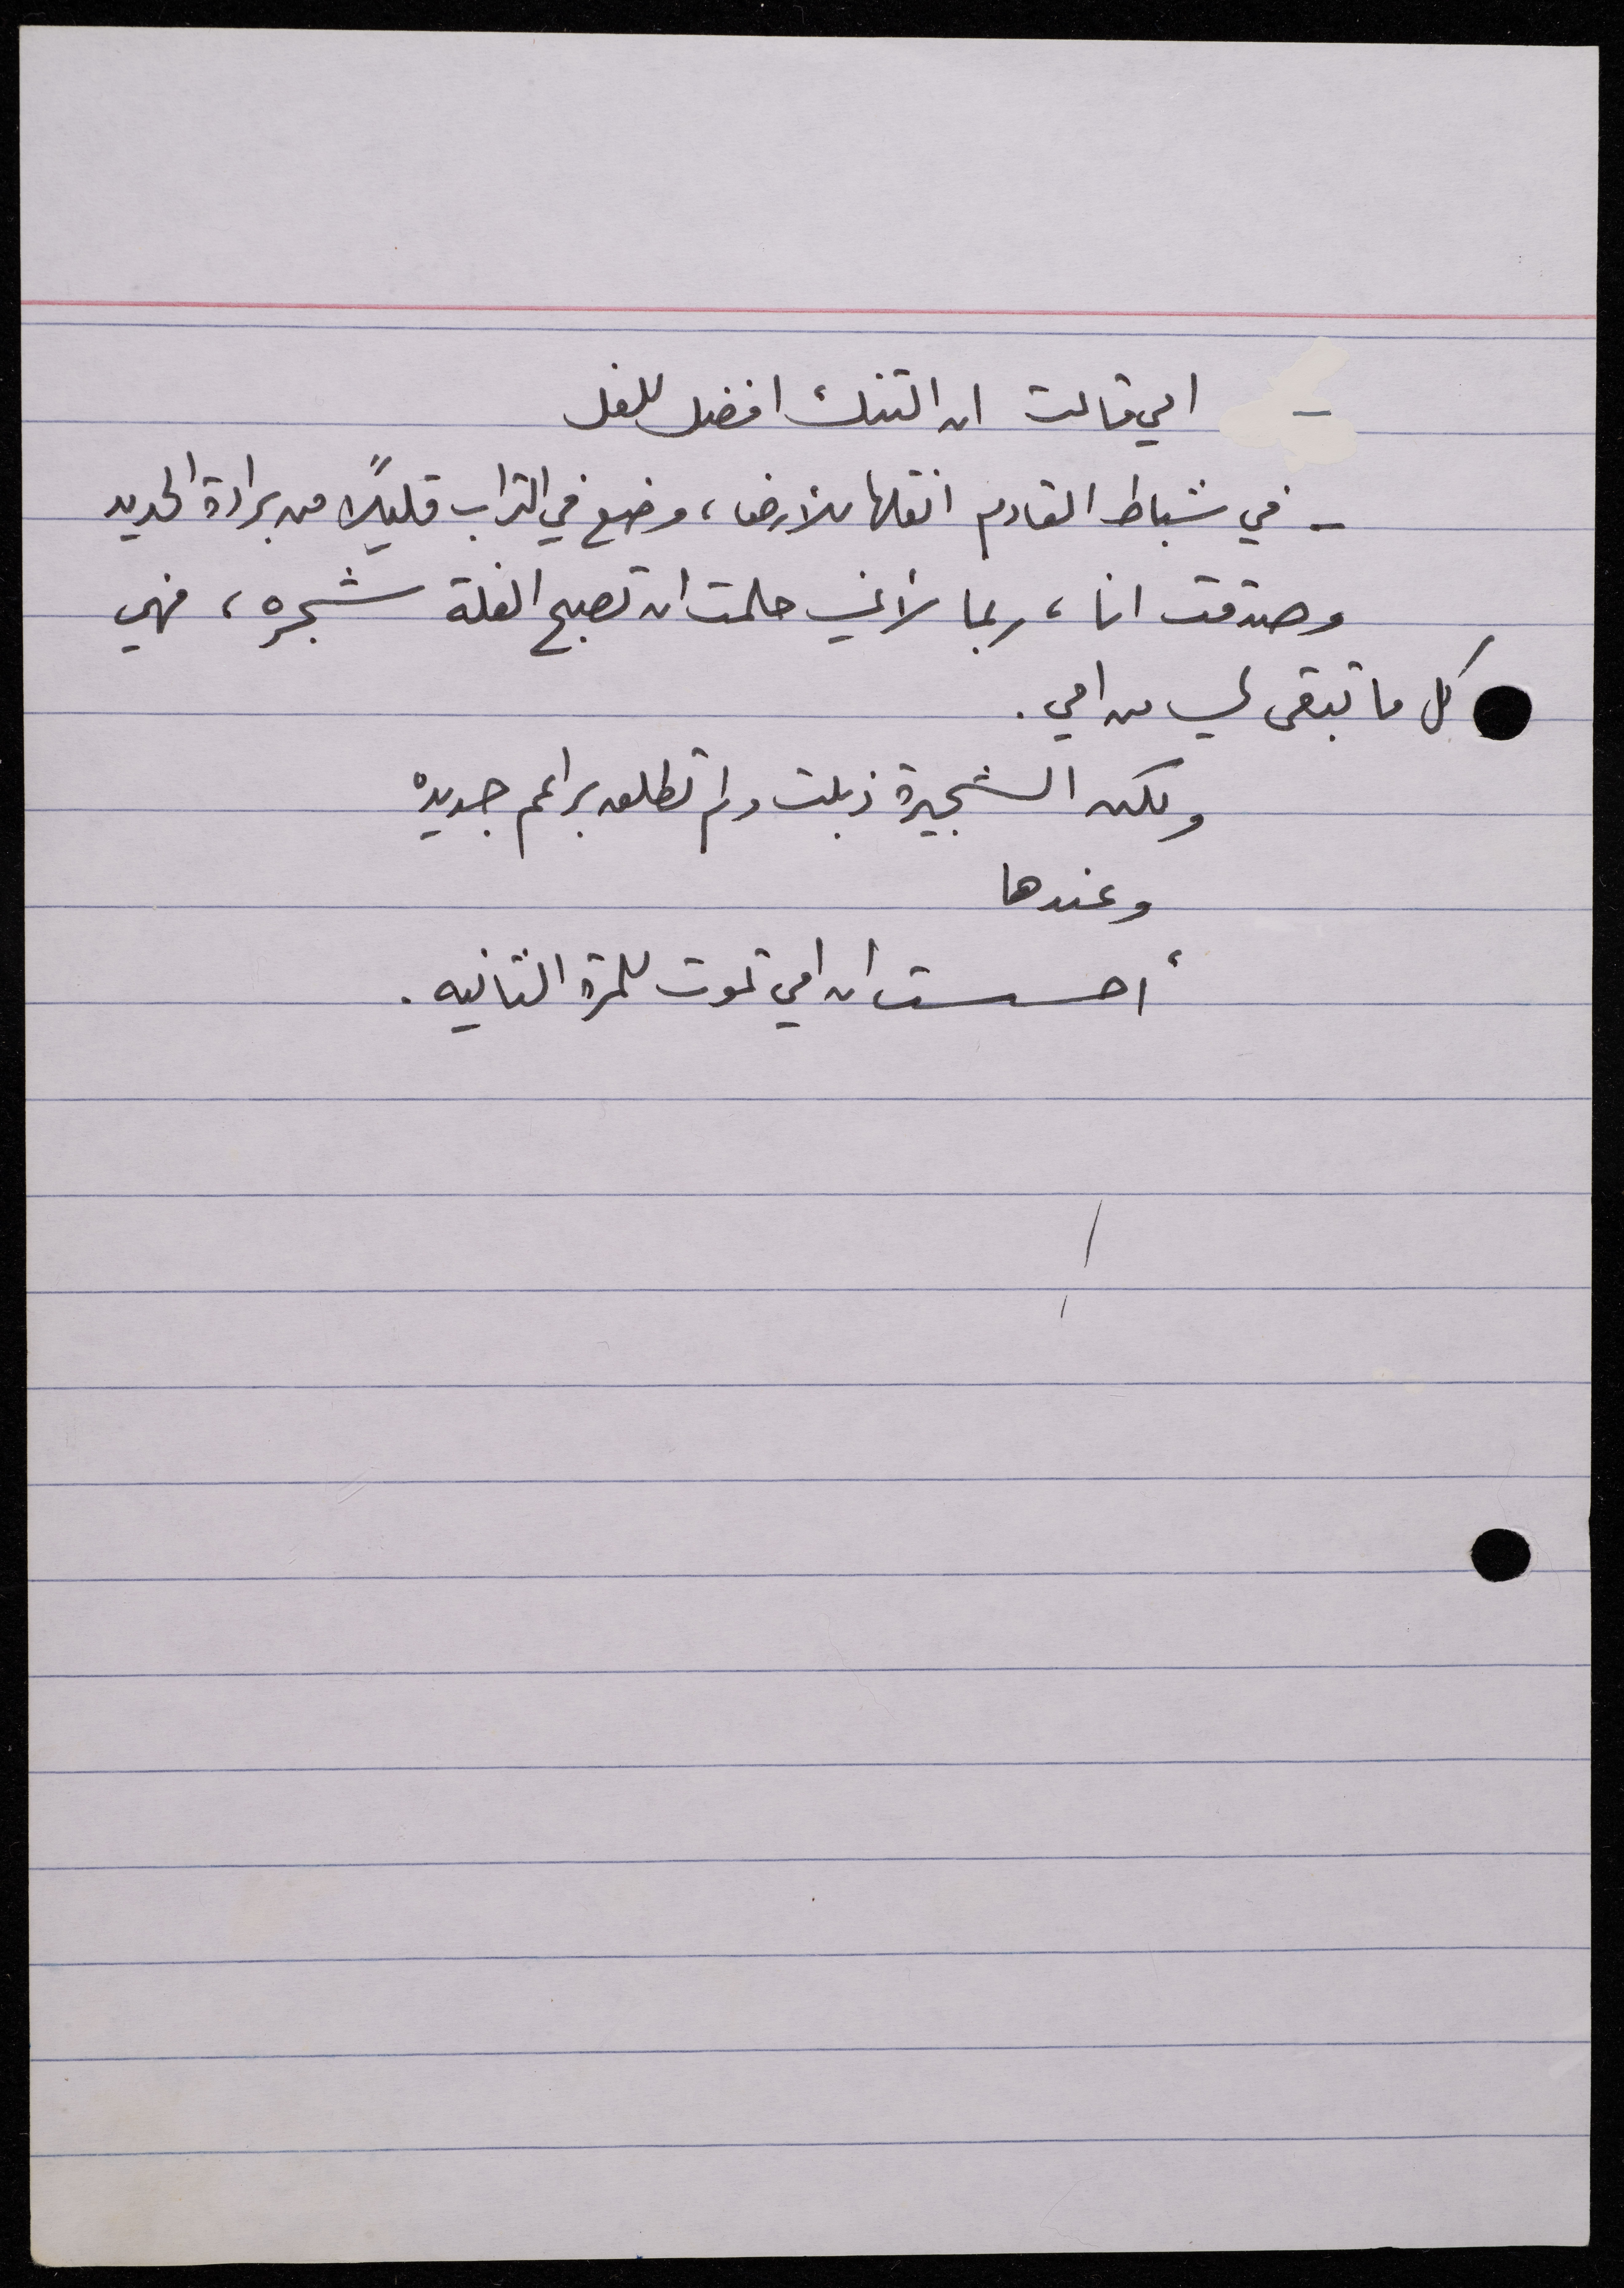 - امي قالت ان التنك افضل للفل
- في شباط القادم انقلها للأرض، وضع في التراب قليلاً من برادة الحديد
وصدقت انا، ربما لأني حلمت ان تصبح الفلة شجره، فهي
كل ما تبقى لي من امي.
ولكن الشجيرة ذبلت ولم تطلع براعم جديده
وعندها
أحسست ان امي تموت للمرة الثانيه.